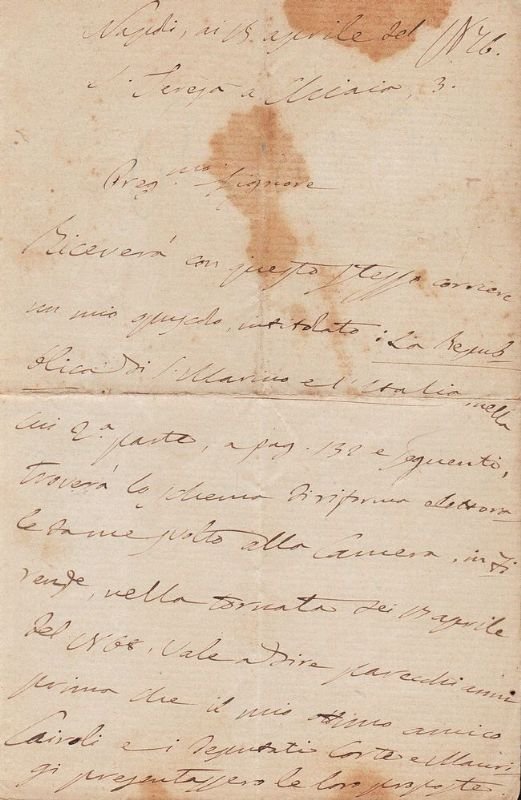 Napoli, ai 18 aprile del 1876.
S. Teresa a Chiaia, 3.
Preg.mo Signore
Riceverà con questo stesso corriere
un mio opuscolo, intitolato: La Repub
blica di S. Marino e l'Italia nella
cui 2.a parte, a pag. 132 e seguenti,
troverà lo schema di riforma elettora
le da me svolto alla Camera, in Fi
renze, nella tornata dei aprile
del 1868. Vale a dire parecchi anni
prima che il mio amico
Cairoli e i deputati Corte e Mauri
gi presentassero le loro proposte